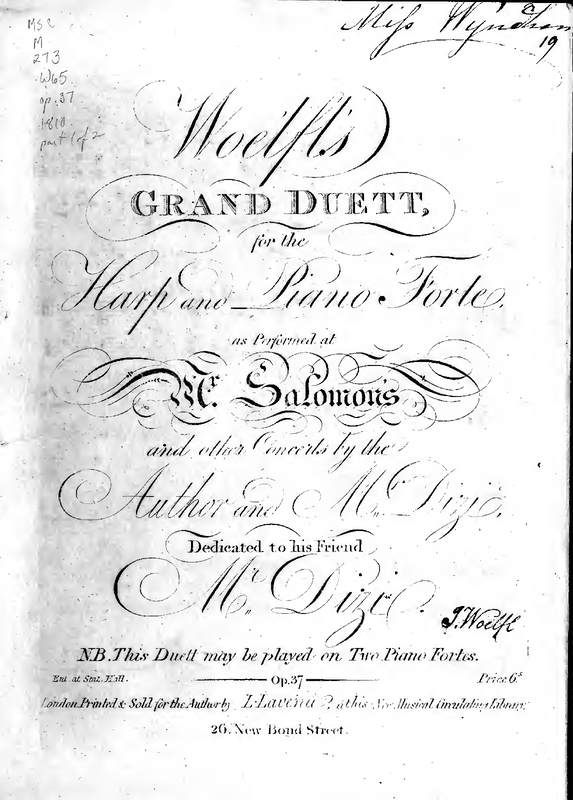 MS2
M
273
.W65
op.37
1810
part 1 of 2
Miss Wyndham
19
Woelfl's
GRAND DUETT,
for the
Harp and Piano Forte,
as Performed at
Mr. Salomon's
and other Concerts by the
Author and Mr. Dizi,
Dedicated to his Friend
Mr. Dizi.
J. Woelfl
N.B. This Duett may be played on Two Piano Fortes.
Ent. at Stat. Hall.
Op.37
Price 6s
London. Printed & Sold for the Author by L. Lavenu at his New Musical Circulating Library,
26. New Bond Street.